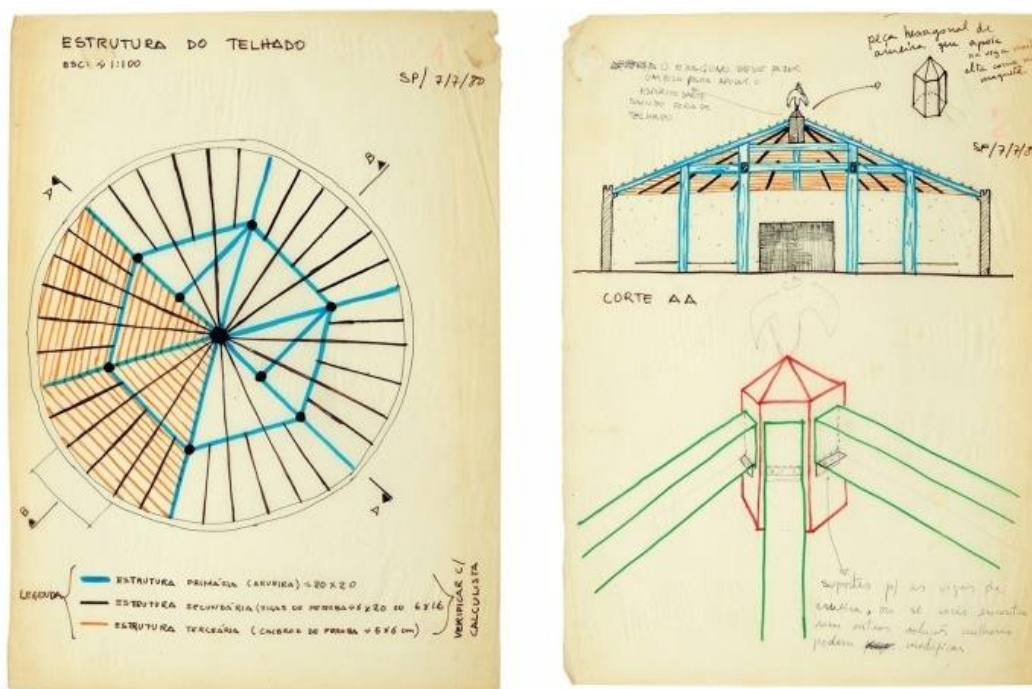 ESTRUTURA DO TELHADO
ESC: 1:100
SP/ 7/7/80
A
B
B
A
LEGENDA
ESTRUTURA PRIMÁRIA (ARUEIRA) 20x20
ESTRUTURA SECUNDÁRIA (VIGAS DE PEROBA 6x20 OU 6x16
ESTRUTURA TERCEÁRIA (CAIBROS DE PEROBA 6x6 cm)
VERIFICAR C/
CALCULISTA
peça hexagonal de
arueira que apoia
na viga mais
alta como na
maquete
O HEXAGONO DEVE FAZER
UM BICO PARA APOIAR O
SAINDO FORA DO
TELHADO
SP/7/7/8
CORTE AA
suportes p/ as vigas de
arueira, ou se vocês encontra
rem outras solução melhores
podem modificar